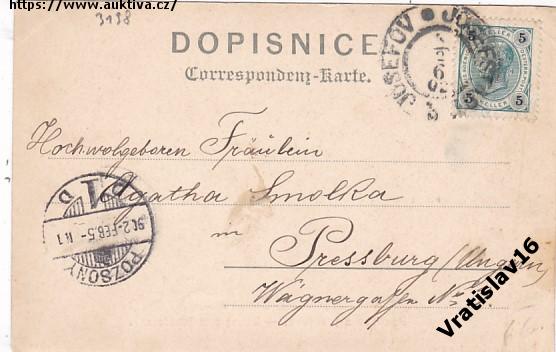 https://www.auktiva.cz/
3198
DOPISNICE
Correspondenz-Karte.
JOSEFOV
5 5
HELLER
5 5
Hochwolgeboren Fräulein
Agatha Smolka
in
Pressburg (Ungarn)
Wagnergassen No
POZSONY
902-FEB.5-
P1
D
Vratislav16